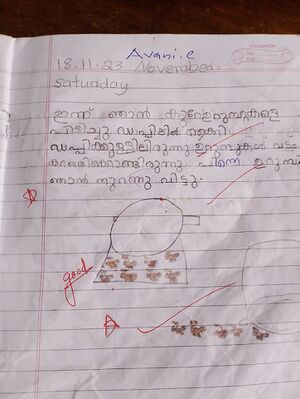 Avani.c
18.11.23 November
Saturday
ഇന്ന് ഞാൻ കുറേ ഉറുമ്പുകളെ
പിടിച്ചു ഡപ്പിയിൽ ആക്കി.
ഡപ്പിക്കുള്ളിലിരുന്നു ഉറുമ്പുകൾ വട്ടം
കറങ്ങിക്കൊണ്ടിരുന്നു. പിന്നെ
ഞാൻ തുറന്നു വിട്ടു.
good
A